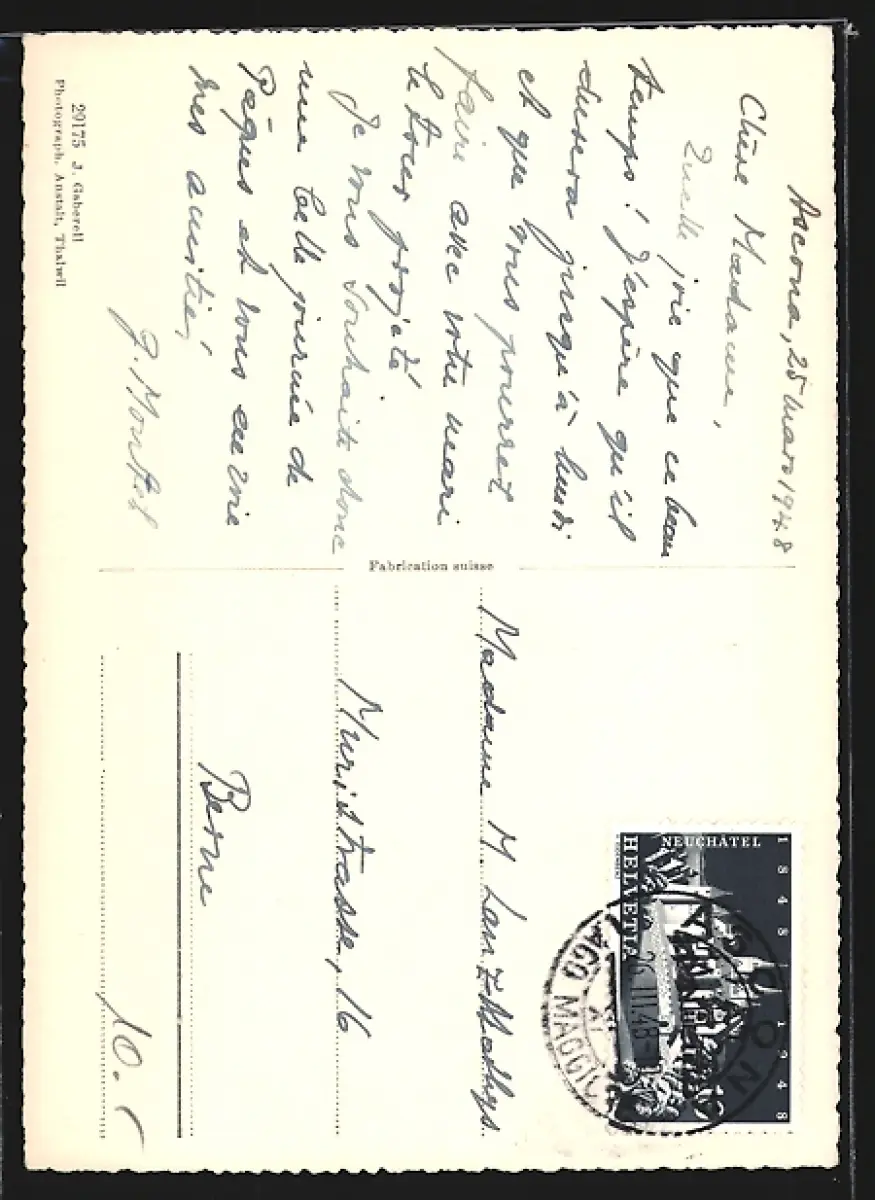 Ascona, 25 mars 1948
Chère Madame,
Quelle joie que ce beau
temps! J'espère qu'il
durera jusqu'à lundi
et que vous pourrez
faire avec votre mari
le tour projeté.
Je vous souhaite donc
une belle journée de
Pâques et vous envoie
mes amitiés,
J. Montet
29175 J. Gaberell
Photograph. Anstalt, Thalwil
Fabrication suisse
Madame M. Lanz-Mathys
Muristrasse, 16
Berne
10.-
NEUCHÂTEL
1848 1948
HELVETIA
10
ASCONA
26.III.48
LAGO MAGGIORE